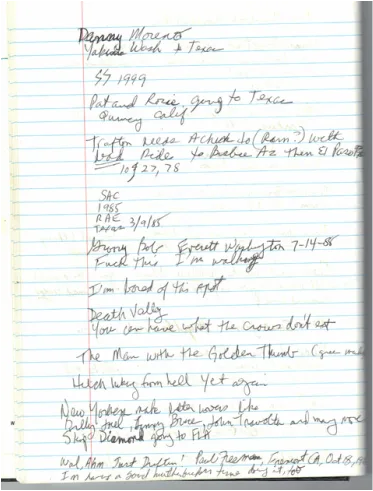 Danny Moreno
Yakima Wash & Texas
SS 1999
Pat and Rosie, going to Texas
Quincy Calif
Trafton needs A chick to (Ram?) with
Rides to Bisbee Az then El Paso
10 of 27, 78
SAC
1985
RAE
Texas 3/9/85
Bob Everett Washington 7-14-85
Fuck this I'm walking
I'm bored of this spot
Death Vally
You can have what the crows don't eat
The Man with the Golden Thumb
Hitch hiking from hell Yet again
New Yorkers make better lovers like
Billy Joel, Lenny Bruce, John Travolta and many more
Skip Diamond going to FLA
Wal, Ahm Just Driftin! Paul Freeman Fremont CA, Oct 18,
I'm having a good time doing it, too